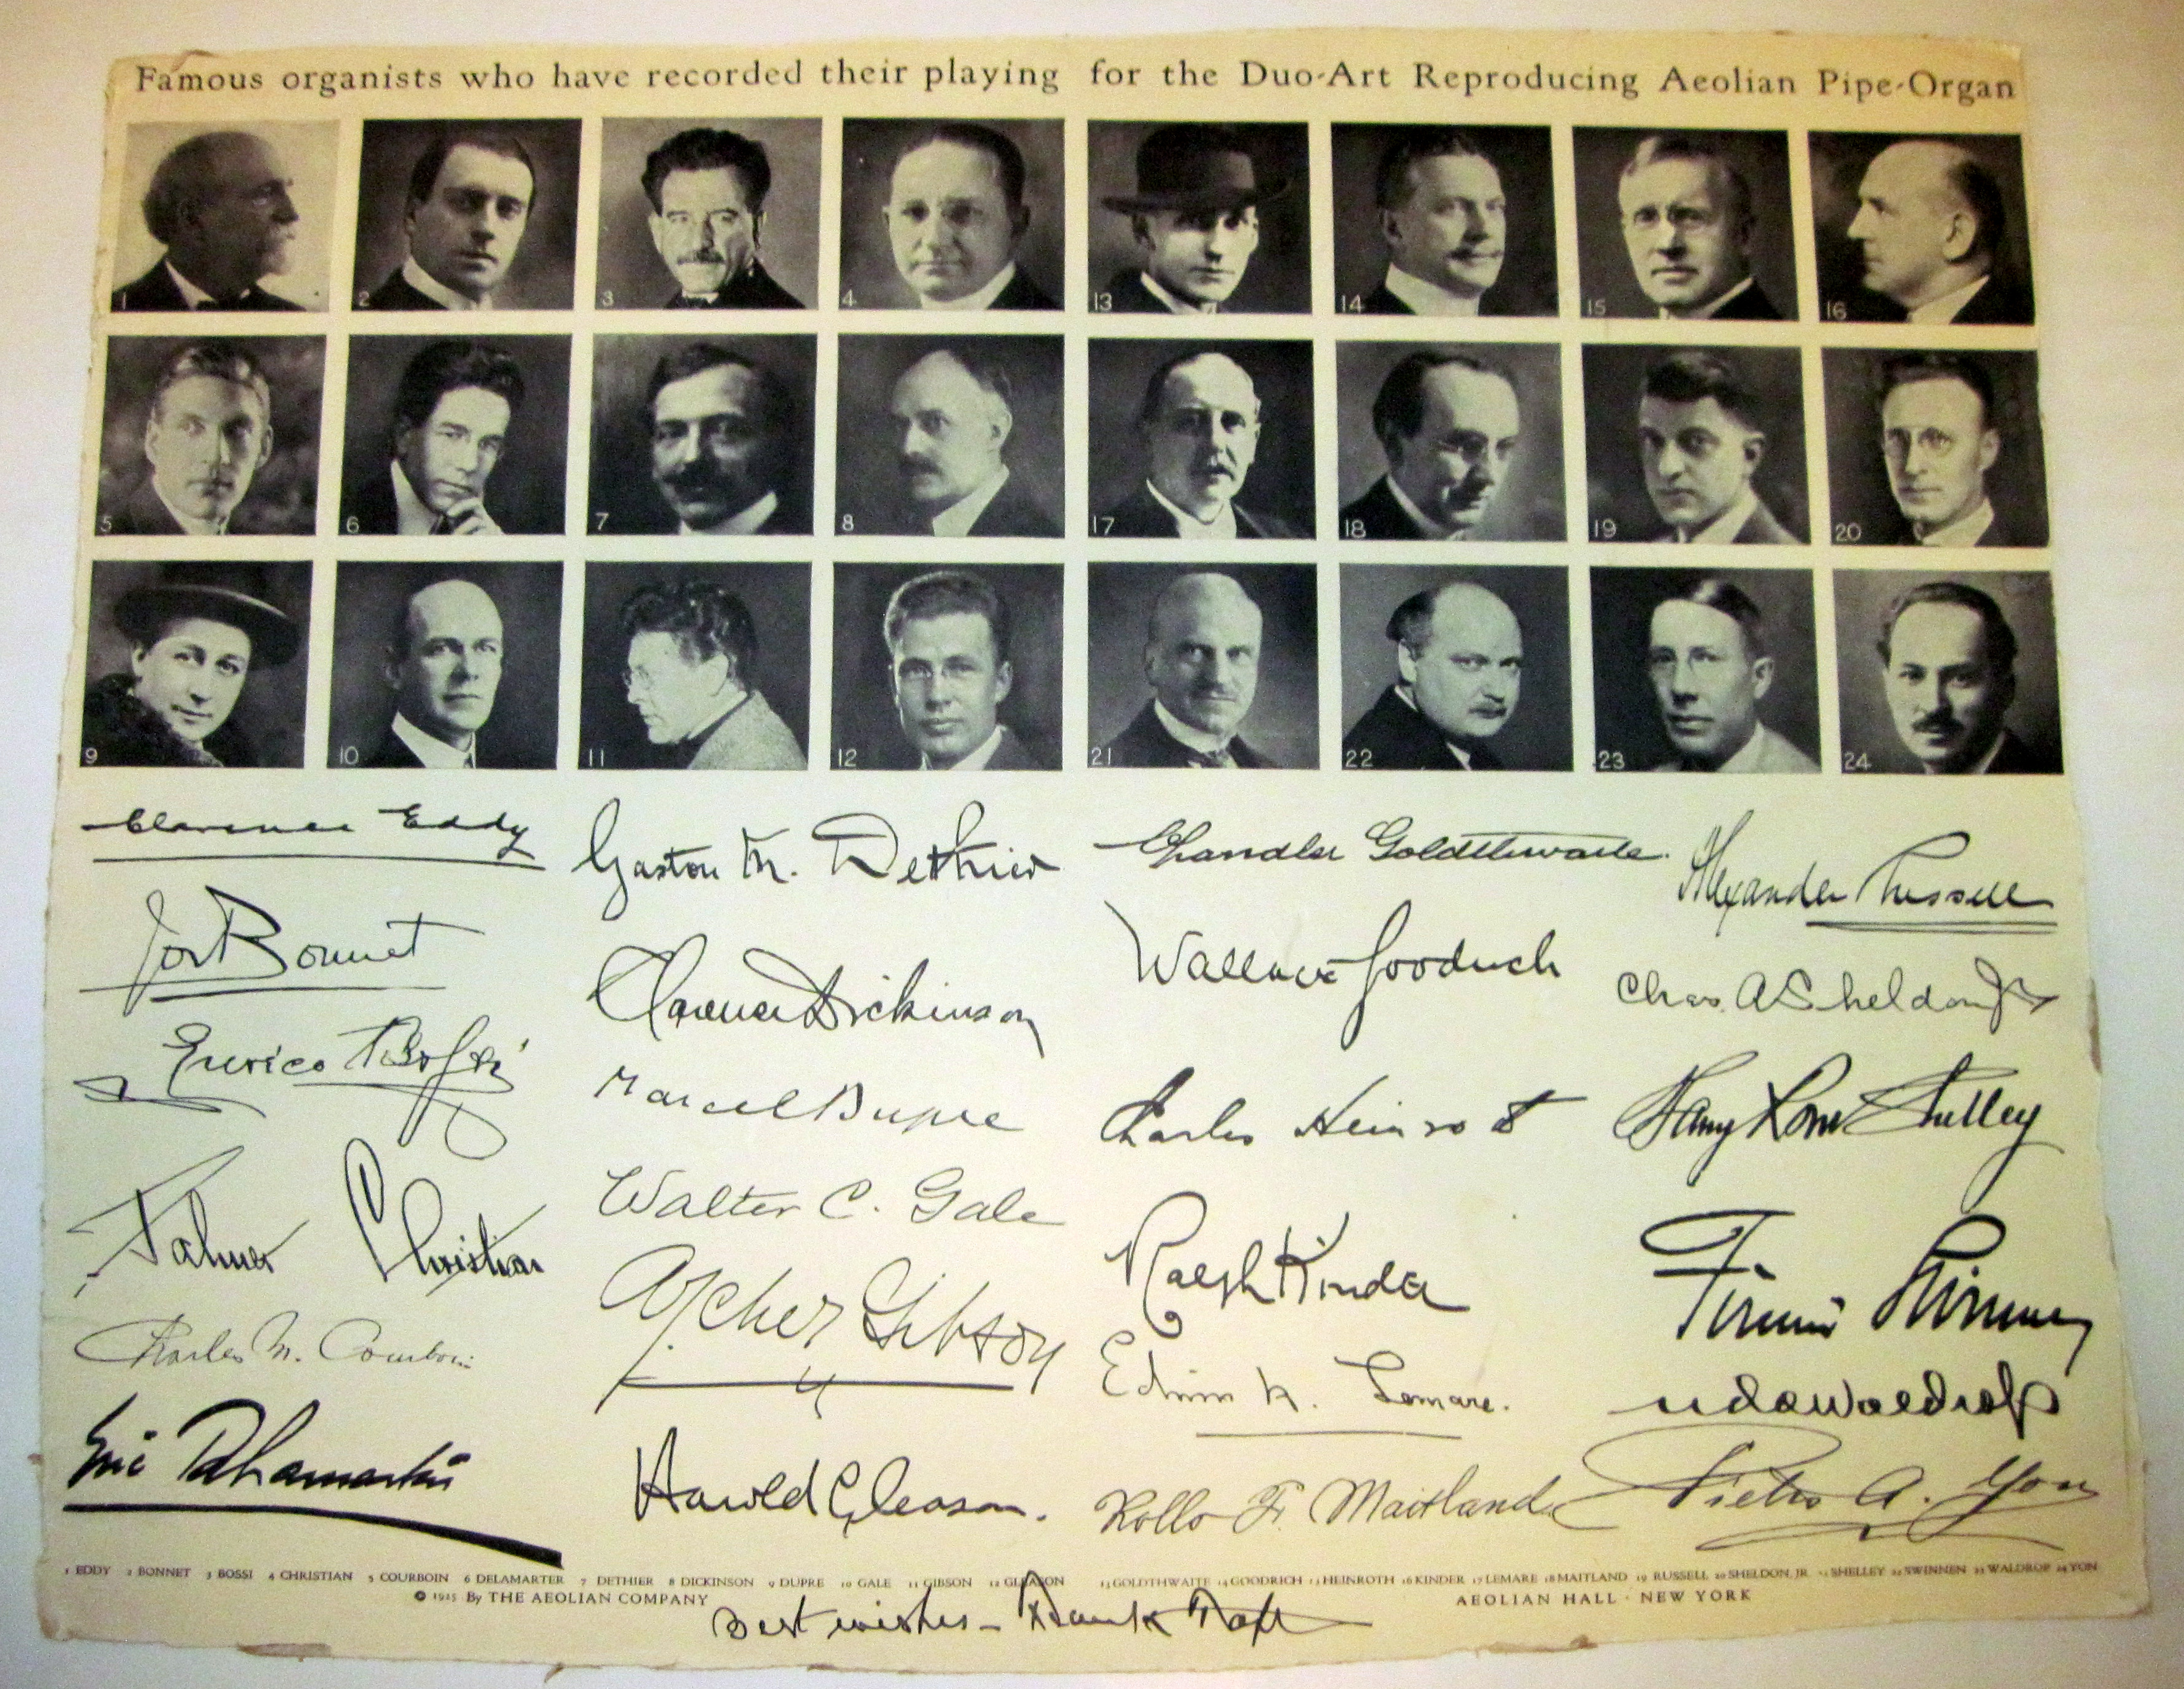 Famous organists who have recorded their playing for the Duo-Art Reproducing Aeolian Pipe-Organ
1 2 3 4 13 14 15 16
5 6 7 8 17 18 19 20
9 10 11 12 21 22 23 24
Clarence Eddy
Jos Bonnet
Enrico Bossi
Palmer Christian
Charles M. Courboin
Eric DeLamarter
Gaston M. Dethier
Clarence Dickinson
Marcel Dupré
Walter C. Gale
Archer Gibson
Harold Gleason.
Chandler Goldthwaite.
Wallace Goodrich
Charles Heinroth
Ralph Kinder
Edwin H. Lemare.
Rollo F. Maitland
Alexander Russell
Chas. A Sheldon Jr
Harry Rowe Shelley
Firmin Swinnen
Uda Waldrop
Pietro A. Yon
1 EDDY 2 BONNET 3 BOSSI 4 CHRISTIAN 5 COURBOIN 6 DELAMARTER 7 DETHIER 8 DICKINSON 9 DUPRE 10 GALE 11 GIBSON 12 GLEASON 13 GOLDTHWAITE 14 GOODRICH 15 HEINROTH 16 KINDER 17 LEMARE 18 MAITLAND 19 RUSSELL 20 SHELDON, JR. 21 SHELLEY 22 SWINNEN 23 WALDROP 24 YON
© 1925 By THE AEOLIAN COMPANY
AEOLIAN HALL · NEW YORK
Best wishes - Frank Taft